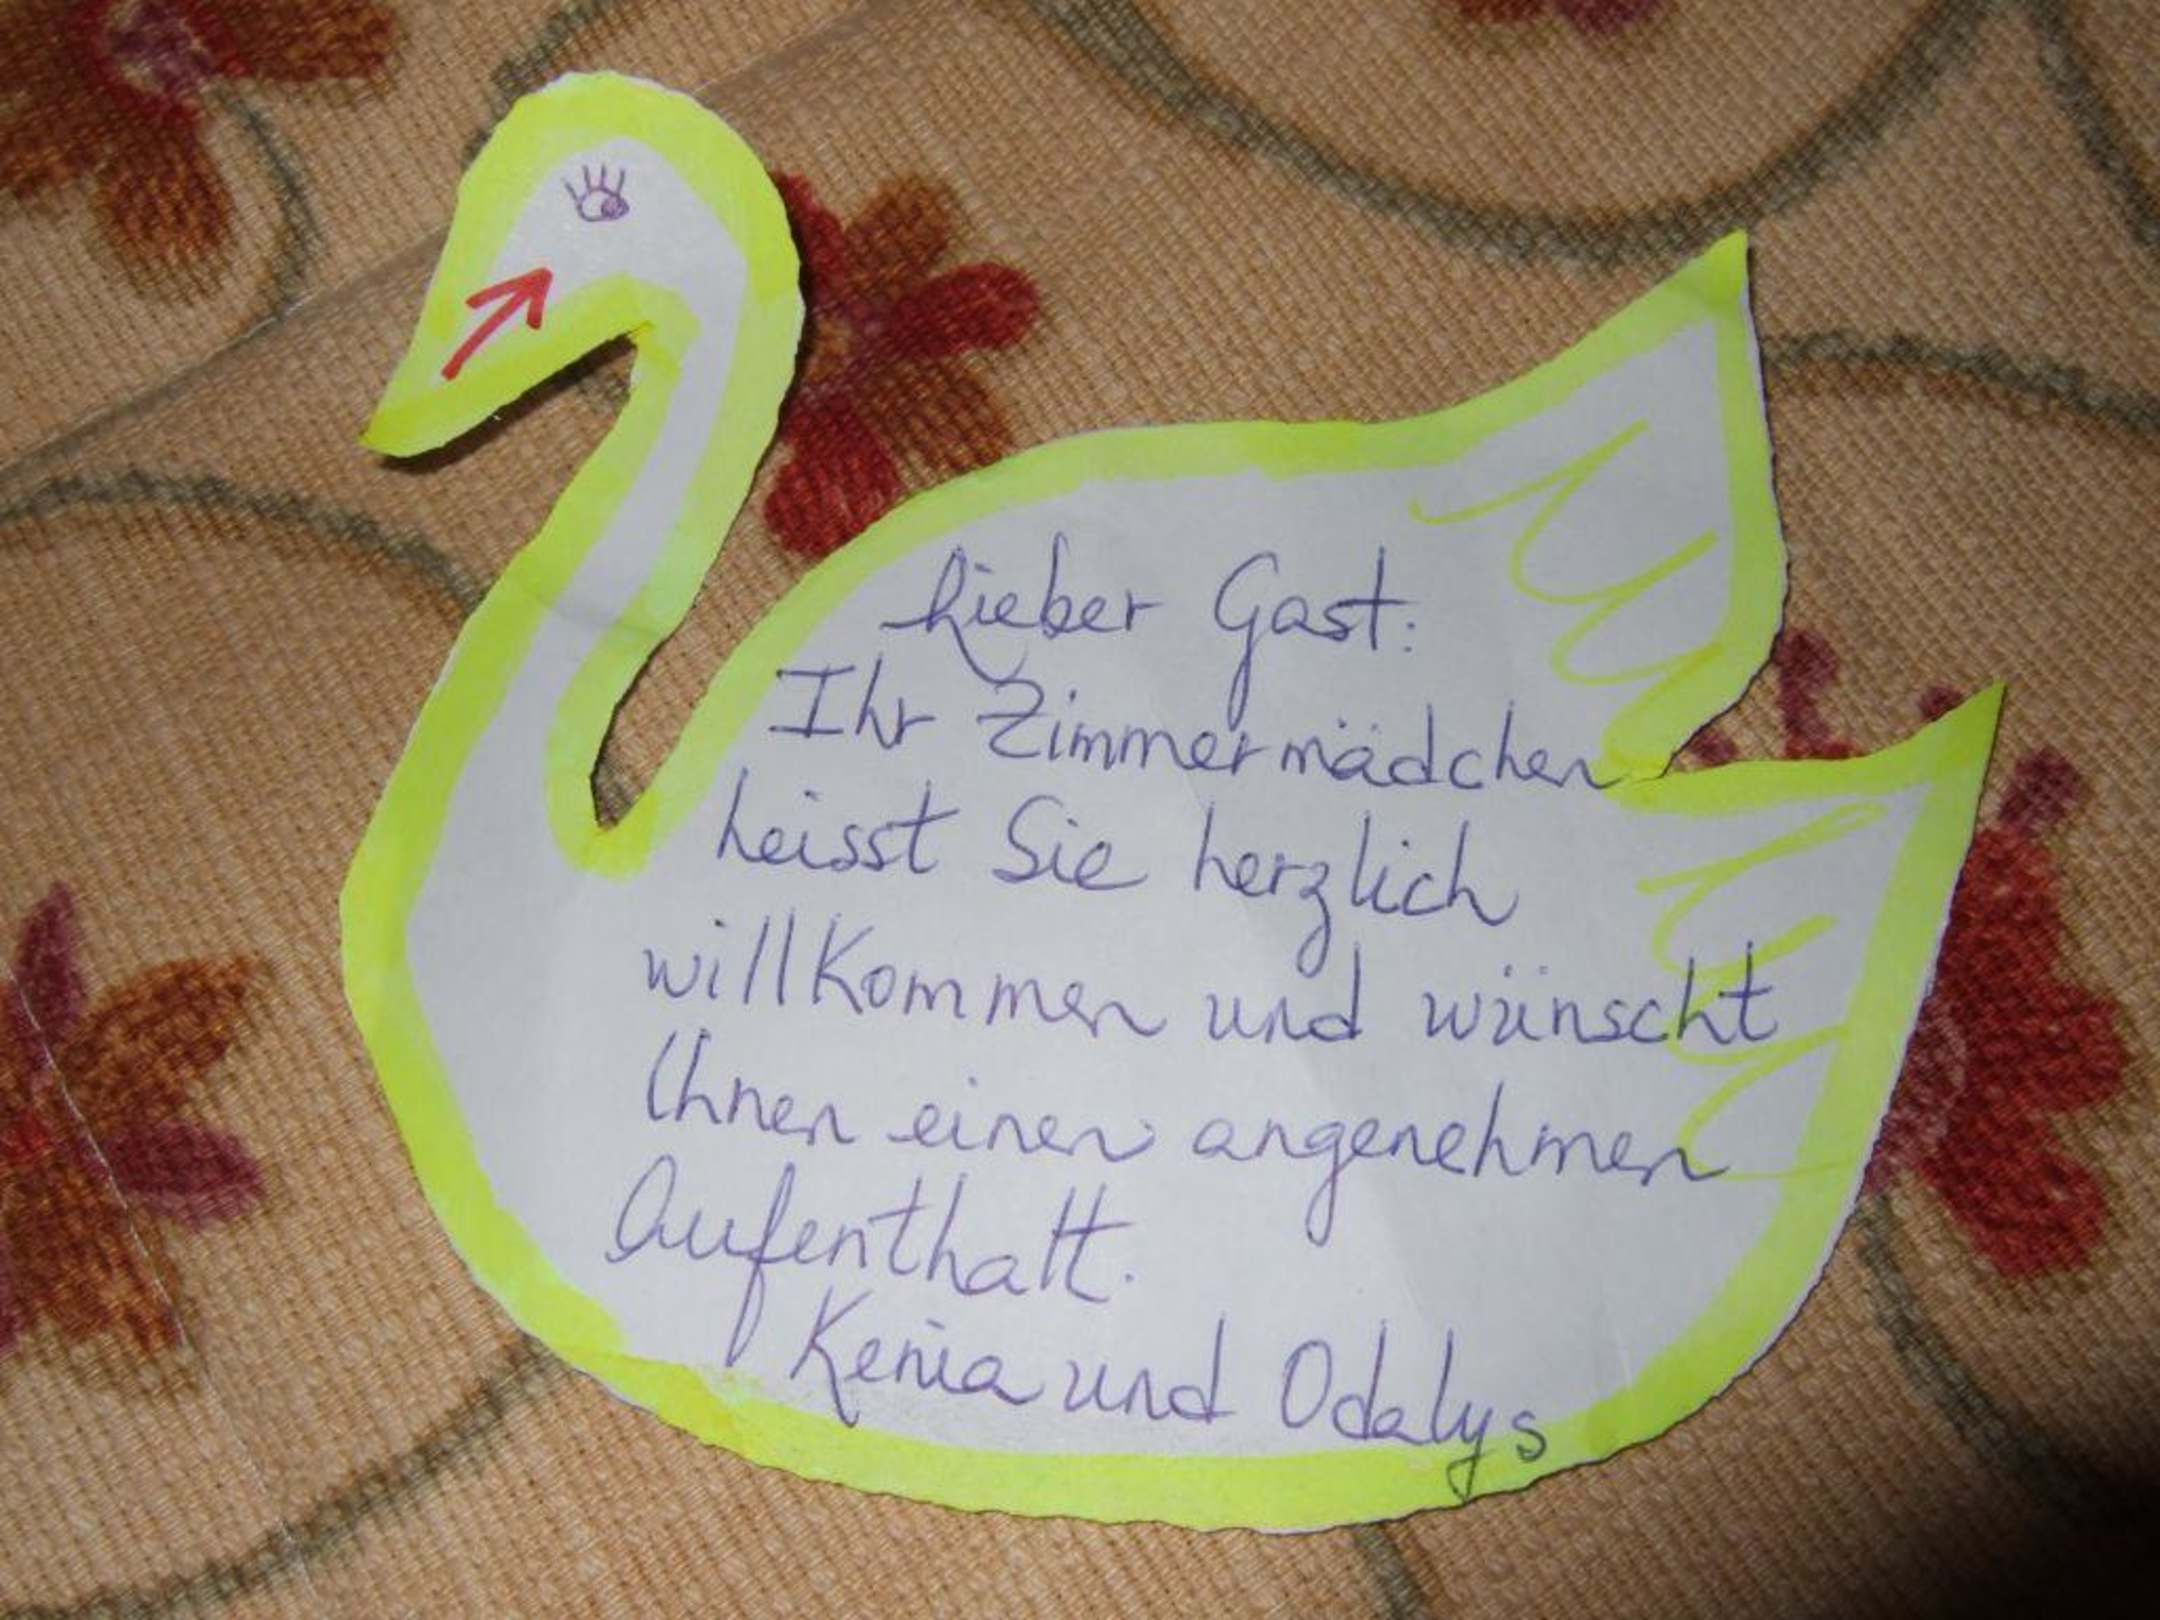 Lieber Gast:
Ihr Zimmermädchen
heisst Sie herzlich
willkommen und wünscht
Ihnen einen angenehmen
Aufenthalt.
Kenia und Odalys